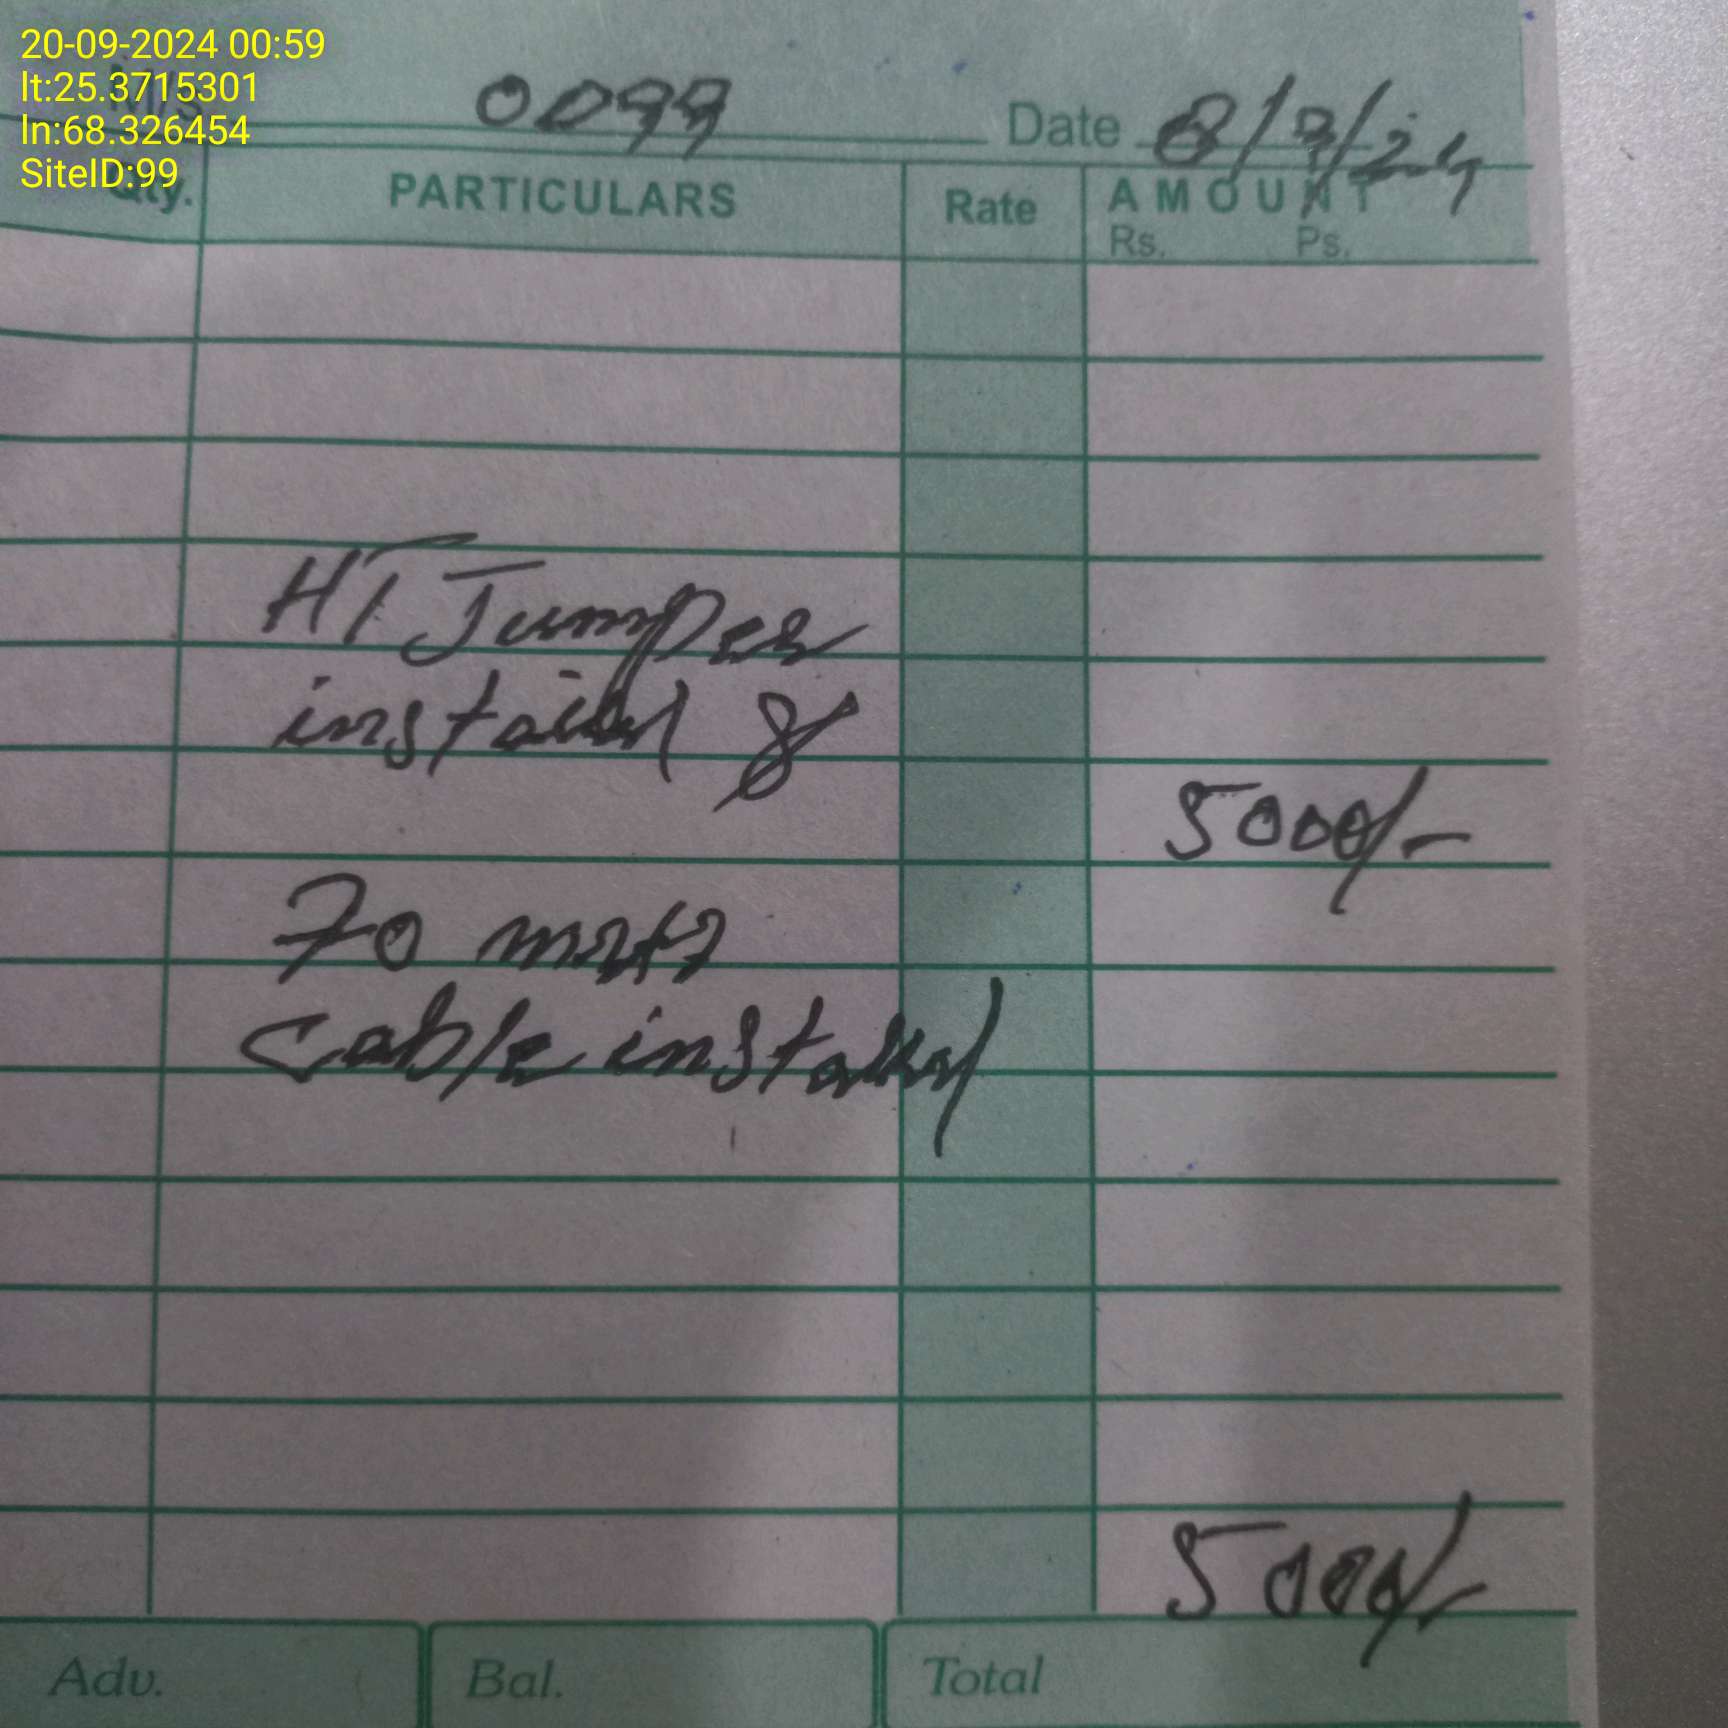 20-09-2024 00:59
lt:25.3715301
ln:68.326454
SiteID:99
M/S. 0099 Date 8/9/24
Qty. PARTICULARS Rate AMOUNT
Rs. Ps.
HT Jumper
install &
5000/-
70 mtr
cable install
5000/-
Adv. Bal. Total